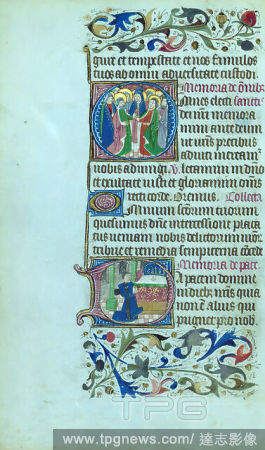 gure et tempestate et nos famulos
tuos ab omni adversitate custodi.
Memoria de omnib
mnes electi sancti
dei nri memora
mini ante deum
ut vris precibus
adiuti
nobis adiungi. V. letamini in dno
et exultate iusti et gloriamini omnes
recti corde. Oremus. Collecta
mnium scorum tuorum
quesumus dne intercessione placa
tus veniam nobis delictorum
tribue et remedia sempiterna
Memoria de pace
a pacem domine
in dieb nris quia
non e alius qui
pugnet pro nob
TPG
www.tpgnews.com / 達志影像